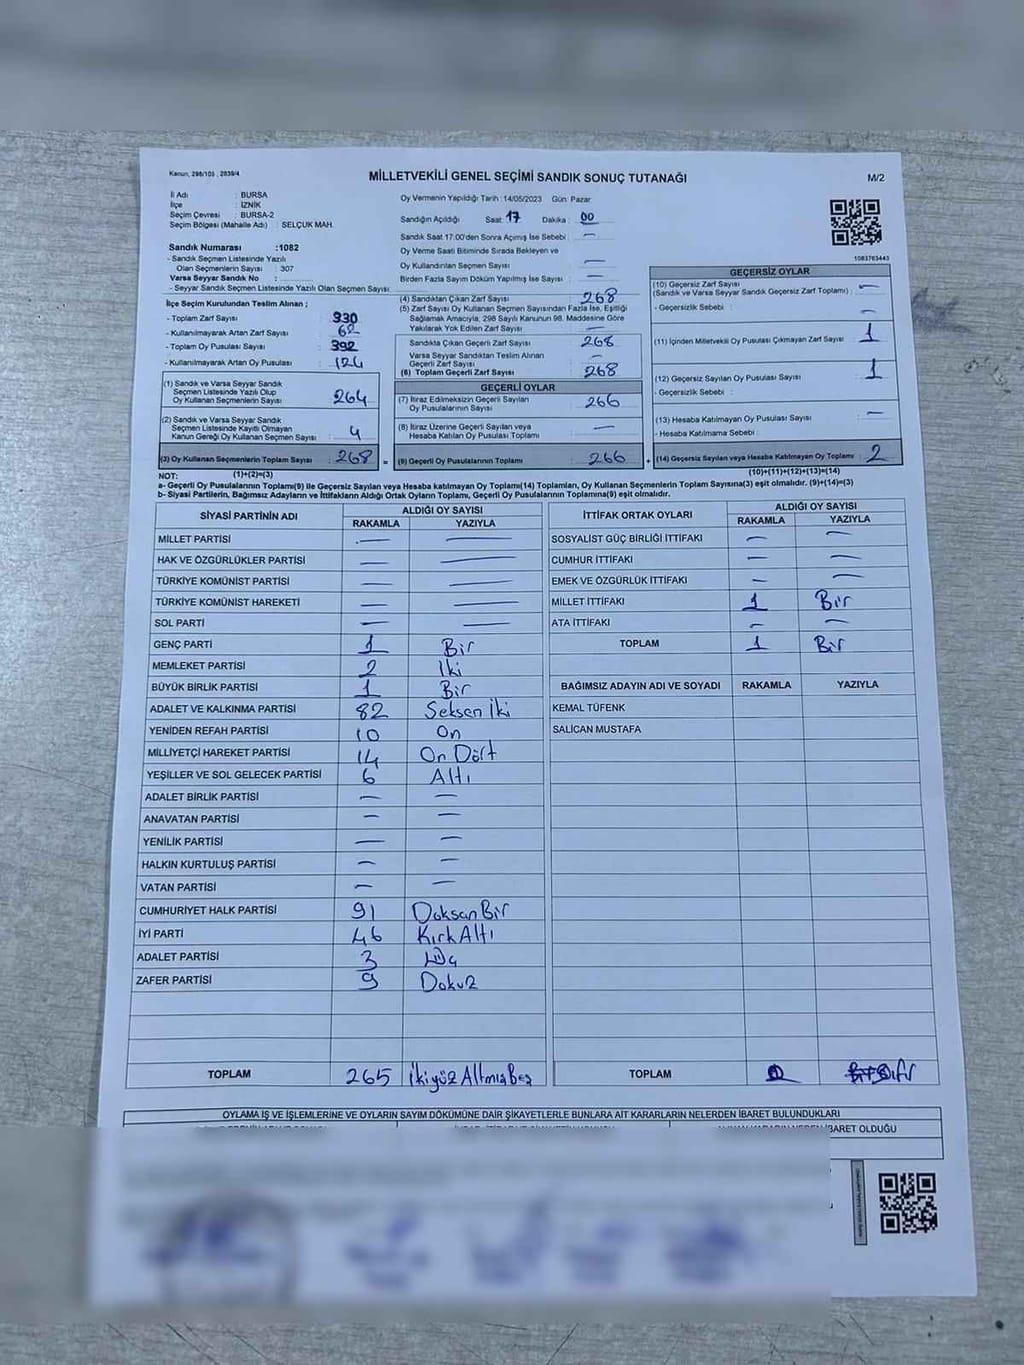 Kanun, 298/105 , 2839/4
MİLLETVEKİLİ GENEL SEÇİMİ SANDIK SONUÇ TUTANAĞI
M/2
İl Adı : BURSA
İlçe : İZNİK
Seçim Çevresi : BURSA-2
Seçim Bölgesi (Mahalle Adı) : SELÇUK MAH.
Sandık Numarası :1082
- Sandık Seçmen Listesinde Yazılı
Olan Seçmenlerin Sayısı : 307
Varsa Seyyar Sandık No :
- Seyyar Sandık Seçmen Listesinde Yazılı Olan Seçmen Sayısı:
Oy Vermenin Yapıldığı Tarih : 14/05/2023 Gün: Pazar
Sandığın Açıldığı Saat: 17 Dakika : 00
Sandık Saat 17.00'den Sonra Açımış İse Sebebi : —
Oy Verme Saati Bitiminde Sırada Bekleyen ve
Oy Kullandırılan Seçmen Sayısı —
Birden Fazla Sayım Döküm Yapılmış İse Sayısı : —
1083763443
İlçe Seçim Kurulundan Teslim Alınan ;
- Toplam Zarf Sayısı 330
- Kullanılmayarak Artan Zarf Sayısı 62
- Toplam Oy Pusulası Sayısı 392
- Kullanılmayarak Artan Oy Pusulası 124
(1) Sandık ve Varsa Seyyar Sandık
Seçmen Listesinde Yazılı Olup
Oy Kullanan Seçmenlerin Sayısı 264
(2) Sandık ve Varsa Seyyar Sandık
Seçmen Listesinde Kayıtlı Olmayan
Kanun Gereği Oy Kullanan Seçmen Sayısı : 4
(3) Oy Kullanan Seçmenlerin Toplam Sayısı : 268
(1)+(2)=(3)
(4) Sandıktan Çıkan Zarf Sayısı 268
(5) Zarf Sayısı Oy Kullanan Seçmen Sayısından Fazla İse, Eşitliği
Sağlamak Amacıyla, 298 Sayılı Kanunun 98. Maddesine Göre
Yakılarak Yok Edilen Zarf Sayısı —
Sandıkta Çıkan Geçerli Zarf Sayısı : 268
Varsa Seyyar Sandıktan Teslim Alınan
Geçerli Zarf Sayısı —
(6) Toplam Geçerli Zarf Sayısı : 268
GEÇERLİ OYLAR
(7) İtiraz Edilmeksizin Geçerli Sayılan
Oy Pusulalarının Sayısı : 266
(8) İtiraz Üzerine Geçerli Sayılan veya
Hesaba Katılan Oy Pusulası Toplamı : —
= (9) Geçerli Oy Pusulalarının Toplamı : 266
GEÇERSİZ OYLAR
(10) Geçersiz Zarf Sayısı
(Sandık ve Varsa Seyyar Sandık Geçersiz Zarf Toplamı) : —
- Geçersizlik Sebebi : —
(11) İçinden Milletvekili Oy Pusulası Çıkmayan Zarf Sayısı : 1
(12) Geçersiz Sayılan Oy Pusulası Sayısı : 1
- Geçersizlik Sebebi :
(13) Hesaba Katılmayan Oy Pusulası Sayısı : —
- Hesaba Katılmama Sebebi :
+ (14) Geçersiz Sayılan veya Hesaba Katılmayan Oy Toplamı : 2
(10)+(11)+(12)+(13)=(14)
NOT:
a- Geçerli Oy Pusulalarının Toplamı(9) ile Geçersiz Sayılan veya Hesaba katılmayan Oy Toplamı(14) Toplamları, Oy Kullanan Seçmenlerin Toplam Sayısına(3) eşit olmalıdır. (9)+(14)=(3)
b- Siyasi Partilerin, Bağımsız Adayların ve İttifakların Aldığı Ortak Oyların Toplamı, Geçerli Oy Pusulalarının Toplamına(9) eşit olmalıdır.
SİYASİ PARTİNİN ADI
ALDIĞI OY SAYISI
RAKAMLA YAZIYLA
MİLLET PARTİSİ — —
HAK VE ÖZGÜRLÜKLER PARTİSİ — —
TÜRKİYE KOMÜNİST PARTİSİ — —
TÜRKİYE KOMÜNİST HAREKETİ — —
SOL PARTİ — —
GENÇ PARTİ 1 Bir
MEMLEKET PARTİSİ 2 İki
BÜYÜK BİRLİK PARTİSİ 1 Bir
ADALET VE KALKINMA PARTİSİ 82 Seksen İki
YENİDEN REFAH PARTİSİ 10 On
MİLLİYETÇİ HAREKET PARTİSİ 14 On Dört
YEŞİLLER VE SOL GELECEK PARTİSİ 6 Altı
ADALET BİRLİK PARTİSİ — —
ANAVATAN PARTİSİ — —
YENİLİK PARTİSİ — —
HALKIN KURTULUŞ PARTİSİ — —
VATAN PARTİSİ — —
CUMHURİYET HALK PARTİSİ 91 Doksan Bir
İYİ PARTİ 46 Kırk Altı
ADALET PARTİSİ 3 Üç
ZAFER PARTİSİ 9 Dokuz
TOPLAM 265 İkiyüz Altmış Beş
İTTİFAK ORTAK OYLARI
ALDIĞI OY SAYISI
RAKAMLA YAZIYLA
SOSYALİST GÜÇ BİRLİĞİ İTTİFAKI — —
CUMHUR İTTİFAKI — —
EMEK VE ÖZGÜRLÜK İTTİFAKI — —
MİLLET İTTİFAKI 1 Bir
ATA İTTİFAKI — —
TOPLAM 1 Bir
BAĞIMSIZ ADAYIN ADI VE SOYADI RAKAMLA YAZIYLA
KEMAL TÜFENK
SALİCAN MUSTAFA
TOPLAM
OYLAMA İŞ VE İŞLEMLERİNE VE OYLARIN SAYIM DÖKÜMÜNE DAİR ŞİKAYETLERLE BUNLARA AİT KARARLARIN NELERDEN İBARET BULUNDUKLARI
İBARET OLDUĞU